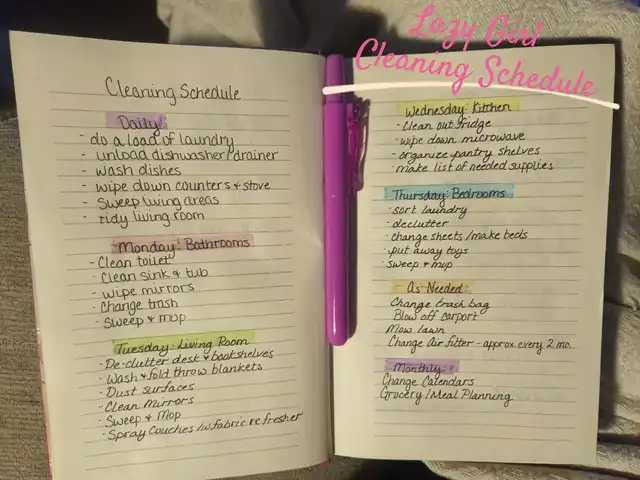 Lazy Girl
Cleaning Schedule
Cleaning Schedule
Daily:
- do a load of laundry
- unload dishwasher/drainer
- wash dishes
- wipe down counters & stove
- sweep living areas
- tidy living room
Monday: Bathrooms
- Clean toilet
- Clean sink & tub
- wipe mirrors
- Change trash
- Sweep & mop
Tuesday: Living Room
- De-clutter desk & bookshelves
- Wash & fold throw blankets
- Dust surfaces
- Clean Mirrors
- Sweep & Mop
- Spray Couches w/fabric refresher
Wednesday: Kitchen
- Clean out fridge
- wipe down microwave
- organize pantry shelves
- make list of needed supplies
Thursday: Bedrooms
- sort laundry
- declutter
- change sheets/make beds
- put away toys
- sweep & mop
As Needed:
Change trash bag
Blow off carport
Mow lawn
Change Air filter - approx. every 2 mo.
Monthly:
Change Calendars
Grocery/Meal Planning